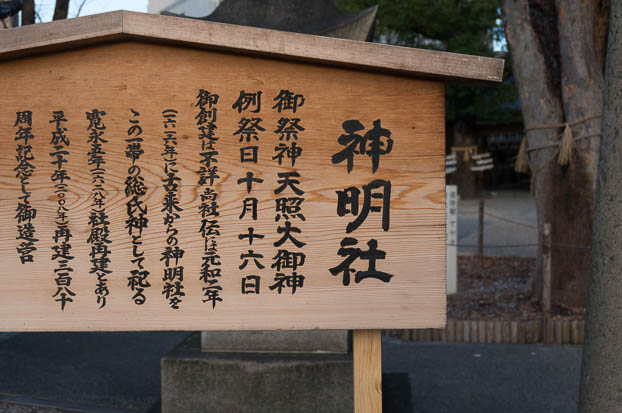 神明社
御祭神 天照大御神
例祭日 十月十六日
御創建は不詳尚社伝は元和二年
(一六一六年)に古来からの神明社を
この一帯の総氏神として祀る
寛永五年(一六二八年)社殿再建とあり
平成二十年(二〇〇八年)再建三百八十
周年記念として御造営